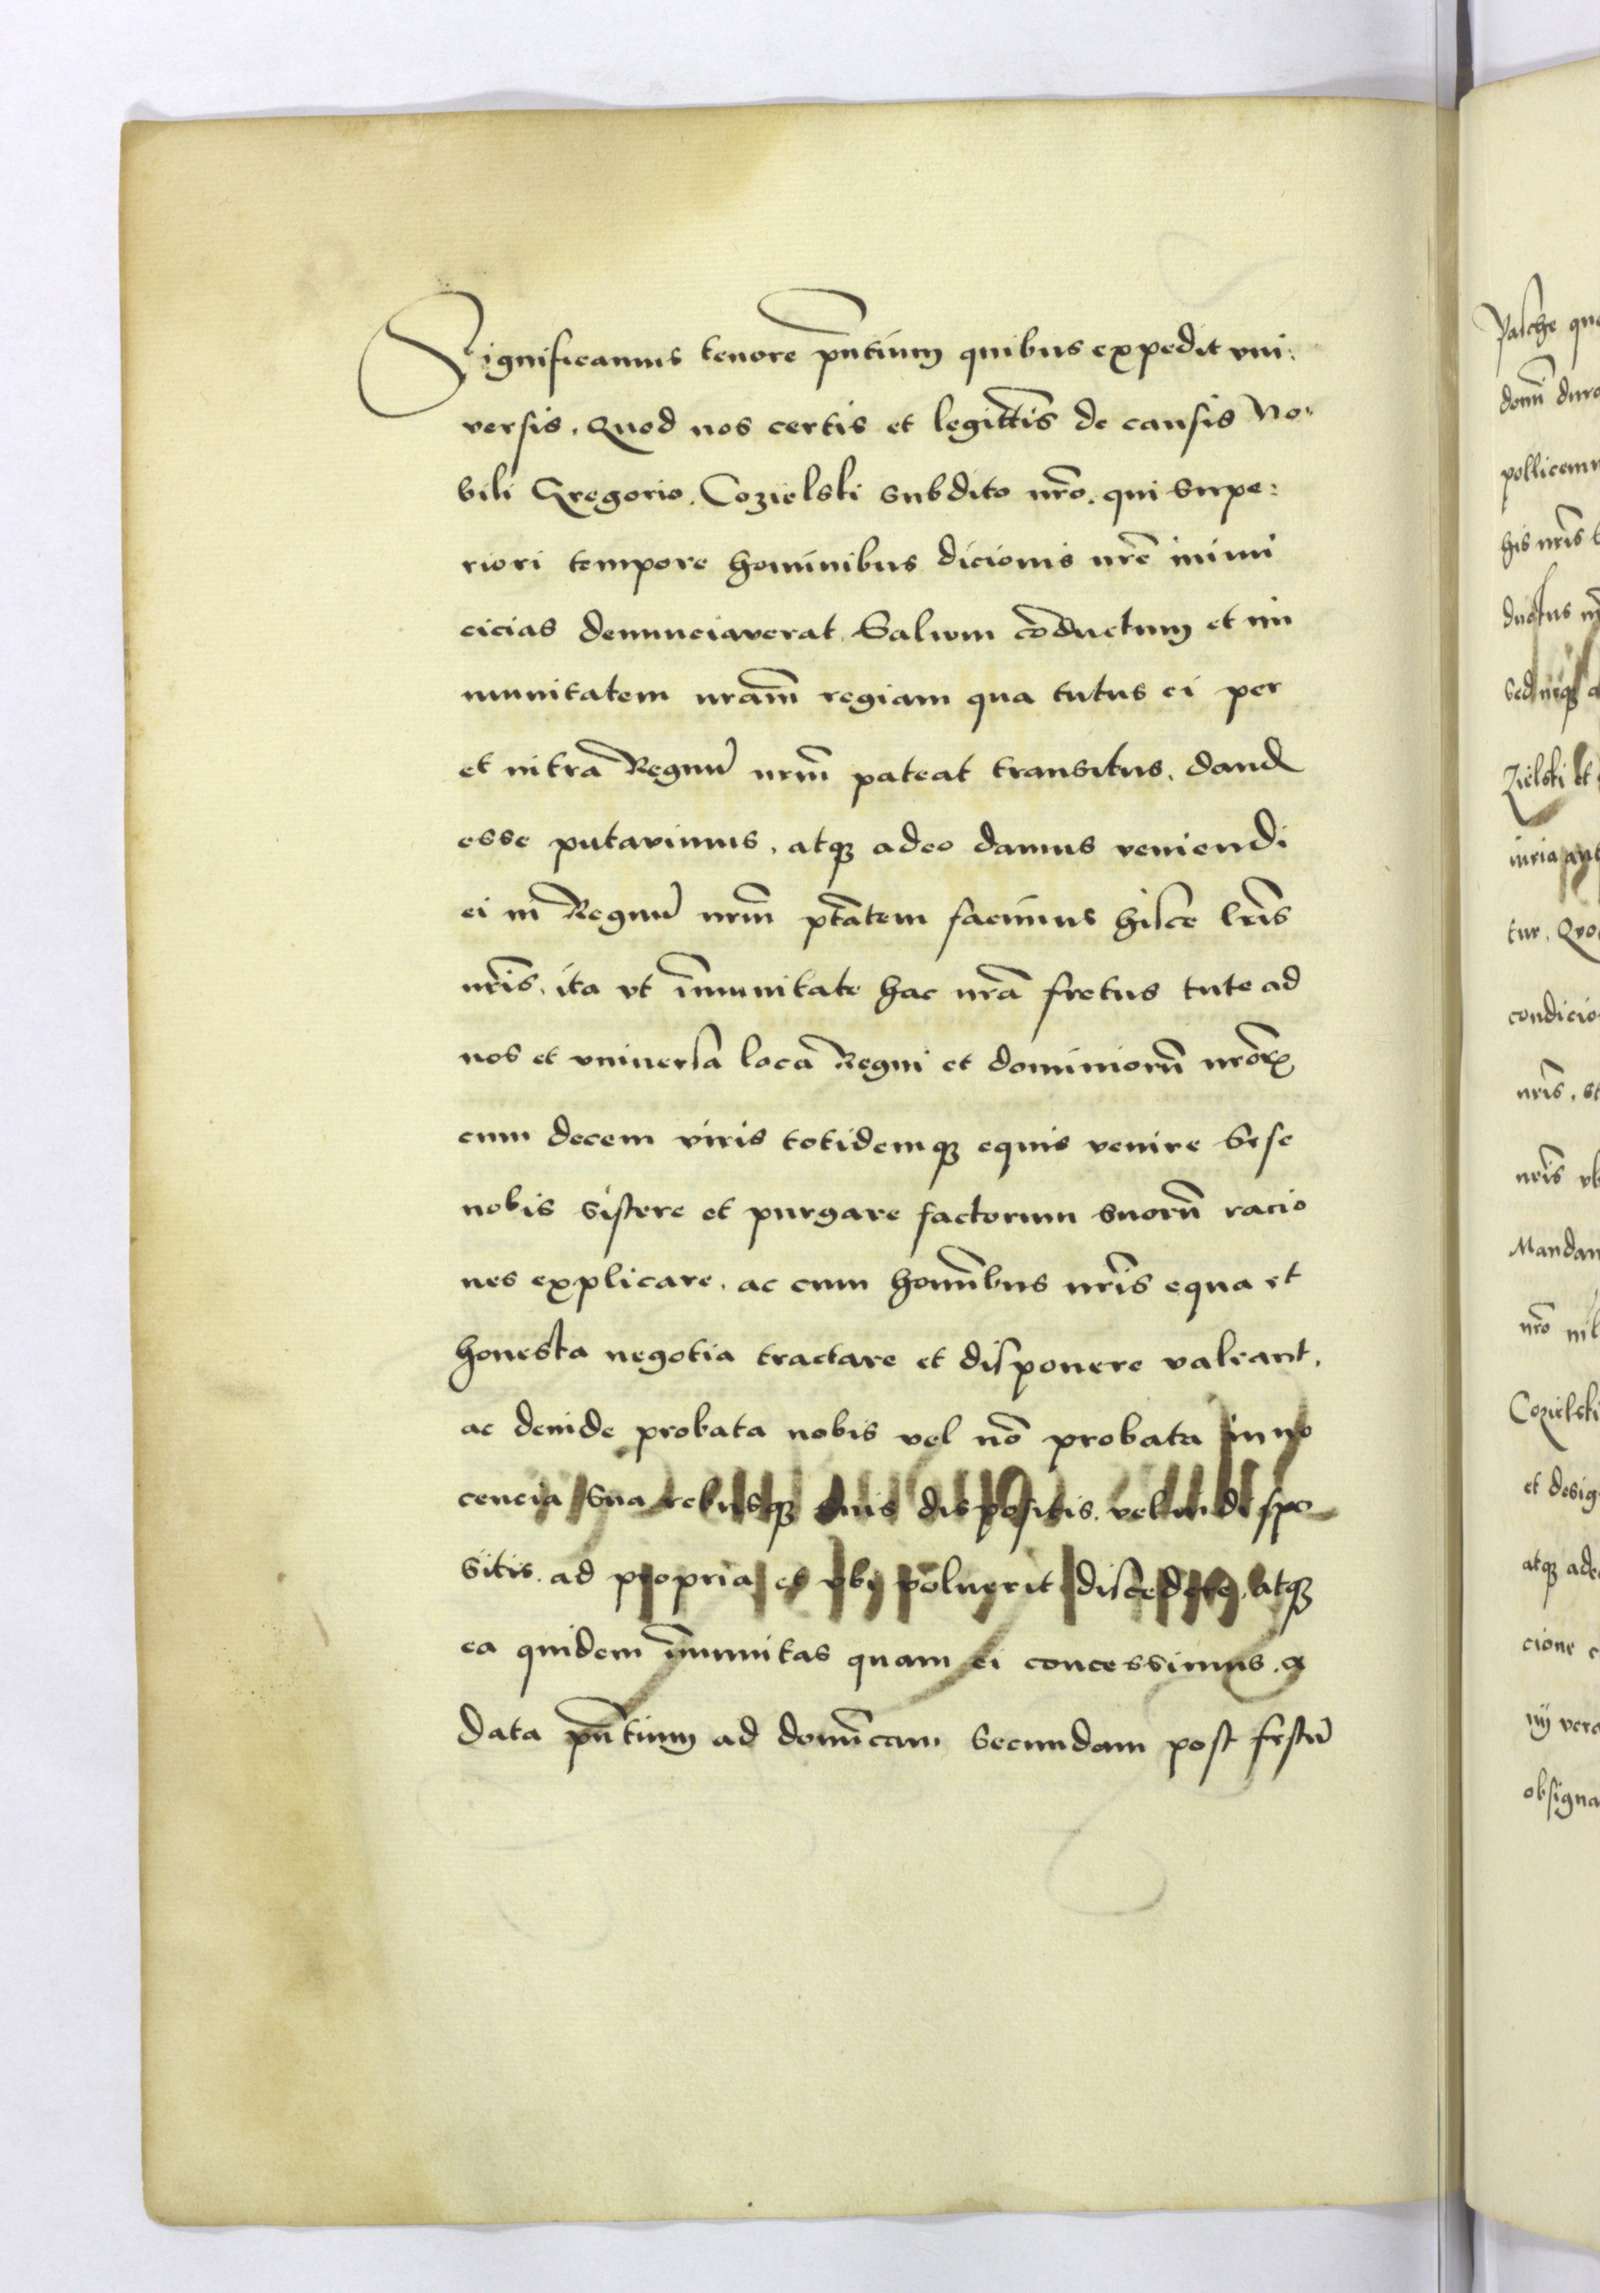 Significamus tenore pñtium quibus expedit vni:
versis. Quod nos certis et legittĩs de causis No:
bili Gregorio. Cozielski subdito nr̃o. qui supe:
riori tempore hominibus dicionis nr̃e inimi
cicias denunciaverat. Salwm cõductum et im
munitatem nram̃ regiam qua tutus ei per
et intra Regnũ nrm̃ pateat transitus. dand
esse putavimus. atqȝ adeo damus veniendi
ei in Regnũ nrm̃ ptãtem facimus hisce lr̃is
nr̃is. ita vt im̃unitate hac nr̃a fretus tute ad
nos et vniuersa loca Regni et dominiorũ nr̃orꝝ
cum decem viris totidemqȝ equis venire Sese
nobis sistere et purgare factorum suorũ racio
nes explicare. ac cum homĩbus nr̃is equa et
honesta negotia tractare et disponere valeant.
ac deinde probata nobis vel nõ probata inno
cencia sua rebusqȝ suis dispositis. vel indispo
sitis. ad propria et vbi voluerit discedere. atqȝ
ea quidem im̃unitas quam ei concessimus. a
data pñtium ad domĩcam secundam post festũ
Pasche
domĩ
pollicem
his nr̃is
ductus
sed neqȝ
Zielski et
iniria ant
tur. Quo
condicio
nr̃is. st
nr̃is vb
Mandam
nr̃o
Cozielski
et desig
atqȝ ade
cione c
iij vero
obsigna